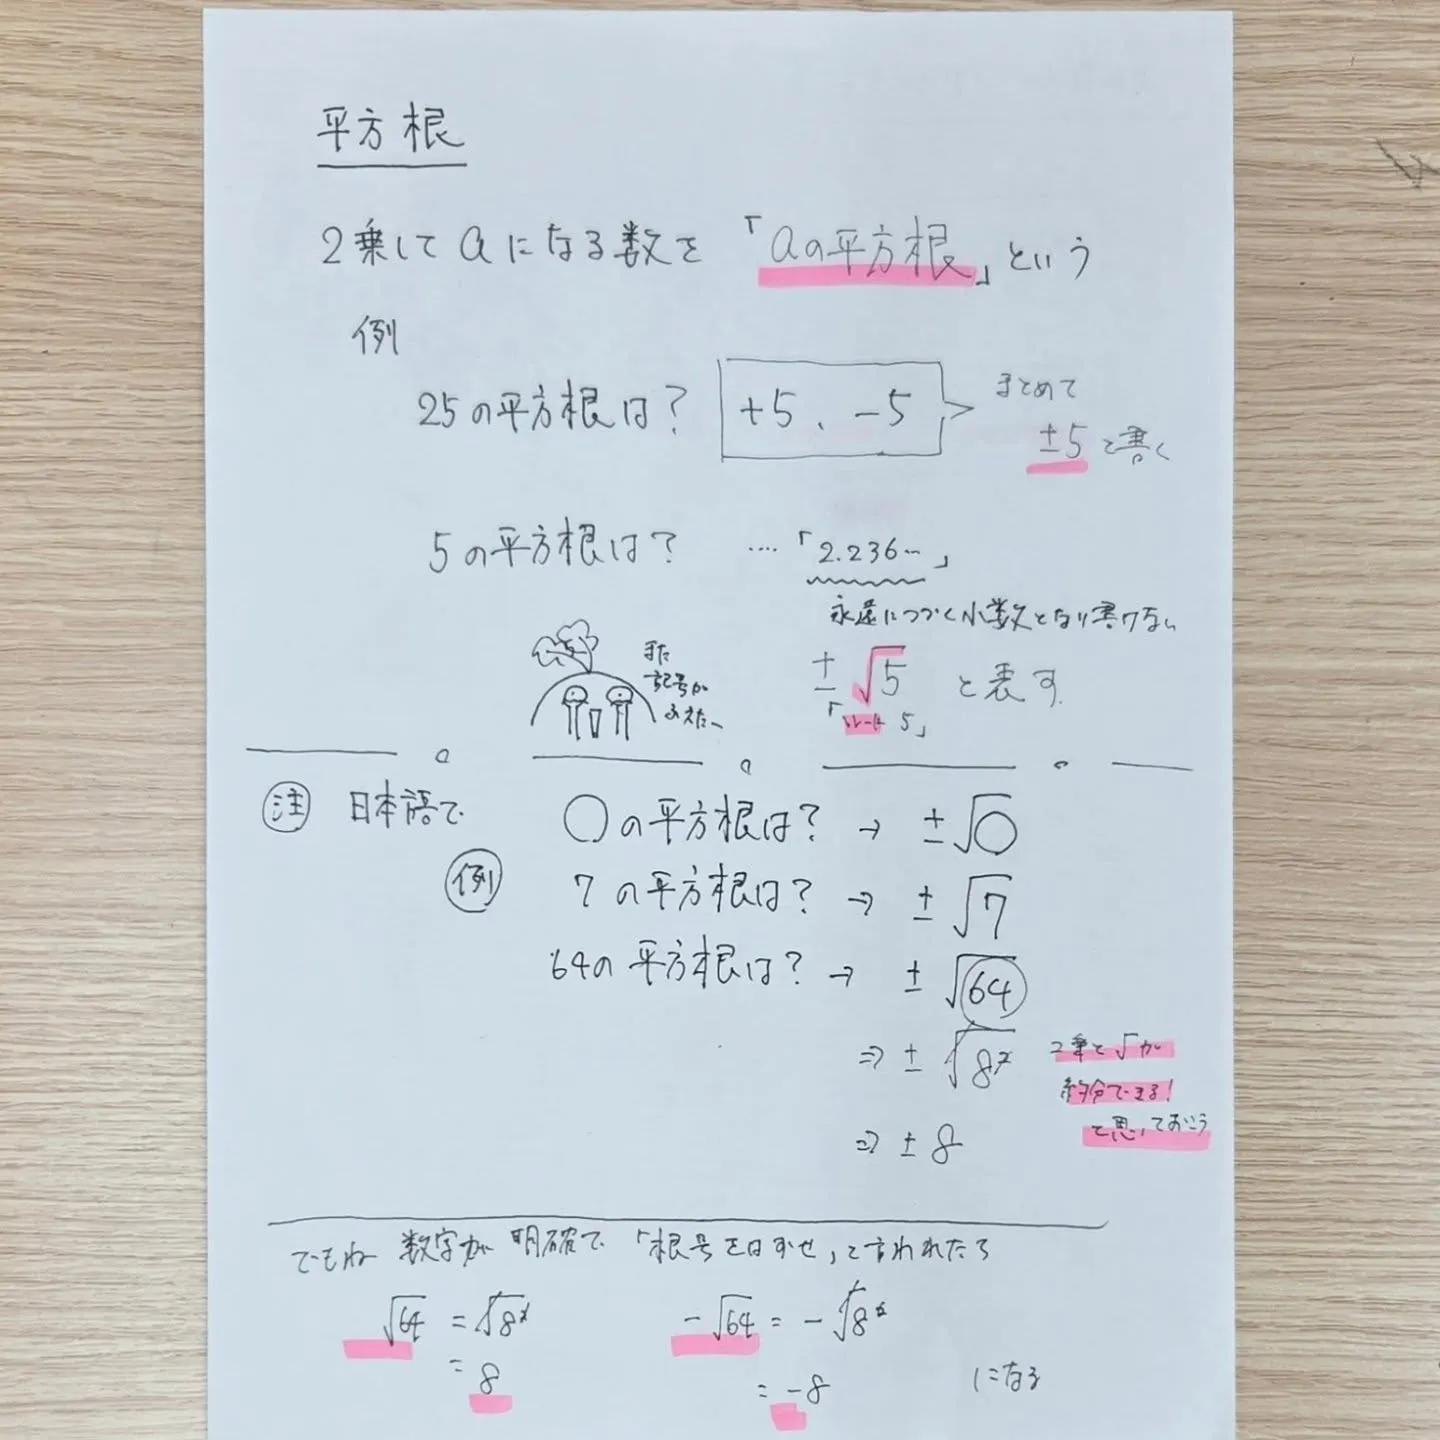 平方根
2乗してaになる数を「aの平方根」という
例
25の平方根は? +5、-5 まとめて
±5と書く
5の平方根は? ....「2.236…」
永遠につづく小数となり書けない
また
記号が
ふえた〜
±√5 と表す
「ルート5」
注 日本語で ○の平方根は? → ±√○
例 7の平方根は? → ±√7
64の平方根は? → ±√64
⇒ ±√8² 2乗と√が
約分できる!
⇒ ±8 と思っておこう
でもね 数字が 明確で「根号をはずせ」と言われたら
√64 = √8² -√64 = -√8²
= 8 = -8 になる